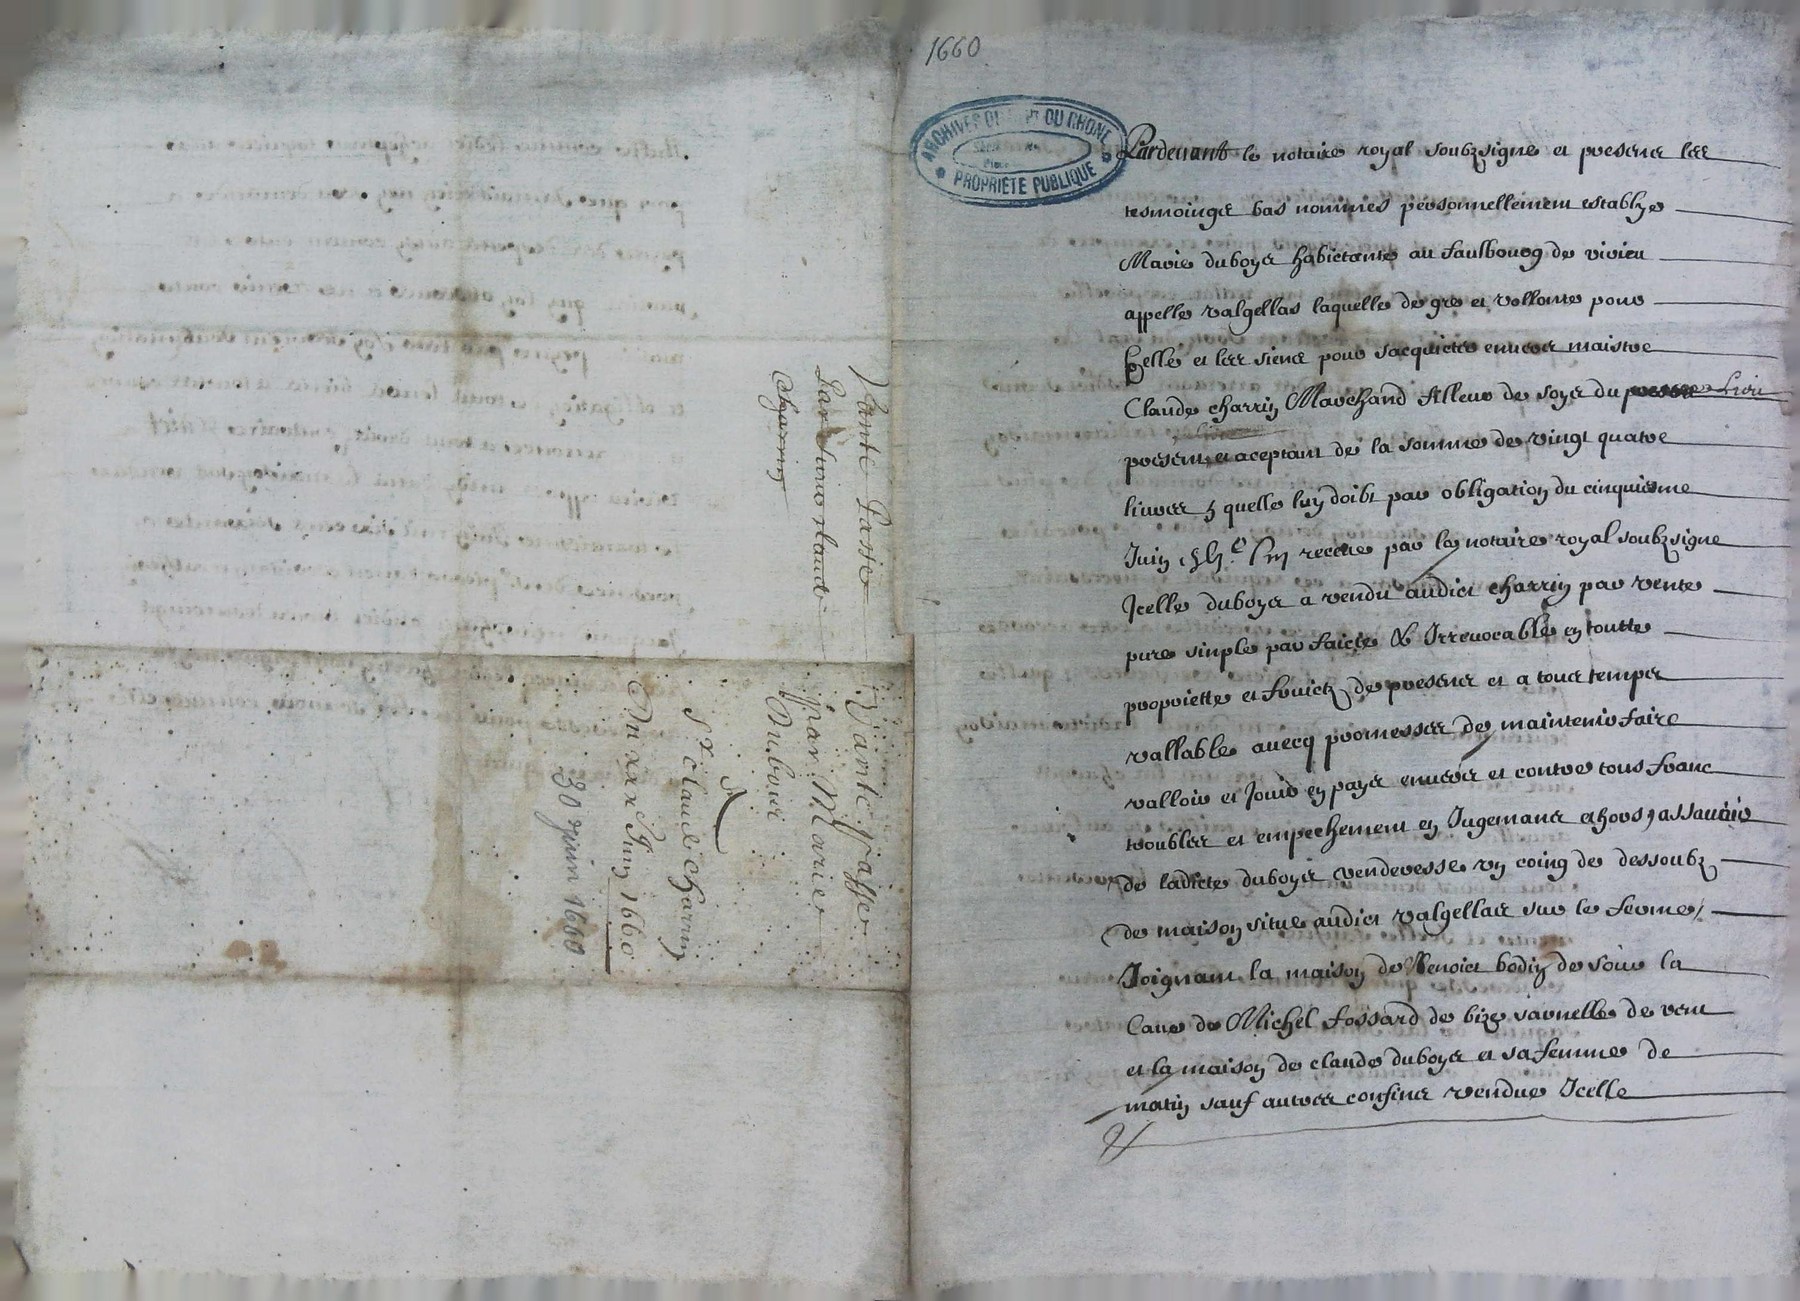 Vante Passé
Par
Charrin
Vante passee
par Marie
Duboier
A
Sr claude charrin
Du xxx Juin 1660
30 juin 1660
1660
ARCHIVES DU RHONE
PROPRIÉTÉ PUBLIQUE
Pardeuant le notaire royal soubzsigne et presence les
tesmoings bas nommes personnellement establye
Marie duboys habictante au faulbourg de vivieu
appelle valgellas laquelle de gre et vollonte pour
Helle et les siens pour sacquicter envers maistre
Claude charrin Marchand filleur de soye du lieu
present et aceptant de la somme de vingt quatre
livres quelle luy doibt par obligation du cinquiesme
Juin receue par le notaire royal soubzsigne
Icelle duboys a vendu audict charrin par vente
pure sinple parfaicte & Irrevocable en toutte
propriette et fruictz de presens et a tous temps
vallable avecq promesses de maintenir faire
valloir et Jouir en paye envers et contre tous franc
troubles et empechement en Jugemans et hors, assauoir
de ladicte duboys venderesse un coing de dessoubz
de maison situe audict valgellas sur le ferme,
Joignant la maison de Benoict bodin de soir la
Cave de Michel fossard de bize ruelle de vent
et la maison de claude duboys et sa femme de
matin sauf autres confins vendue Icelle